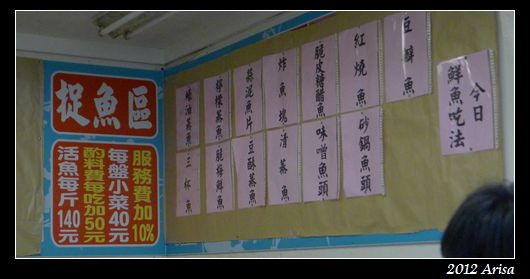 捉魚區
服務費加10%
每盤小菜40元
酌料費每吃加50元
活魚每斤140元
今日
鮮魚吃法
豆酥魚
紅燒魚
脆皮糖醋魚
炸魚塊
蒜泥魚片
檸檬蒸魚
蠔油蒸魚
砂鍋魚頭
味噌魚頭
清蒸魚
豆酥蒸魚
三杯魚
2012 Arisa